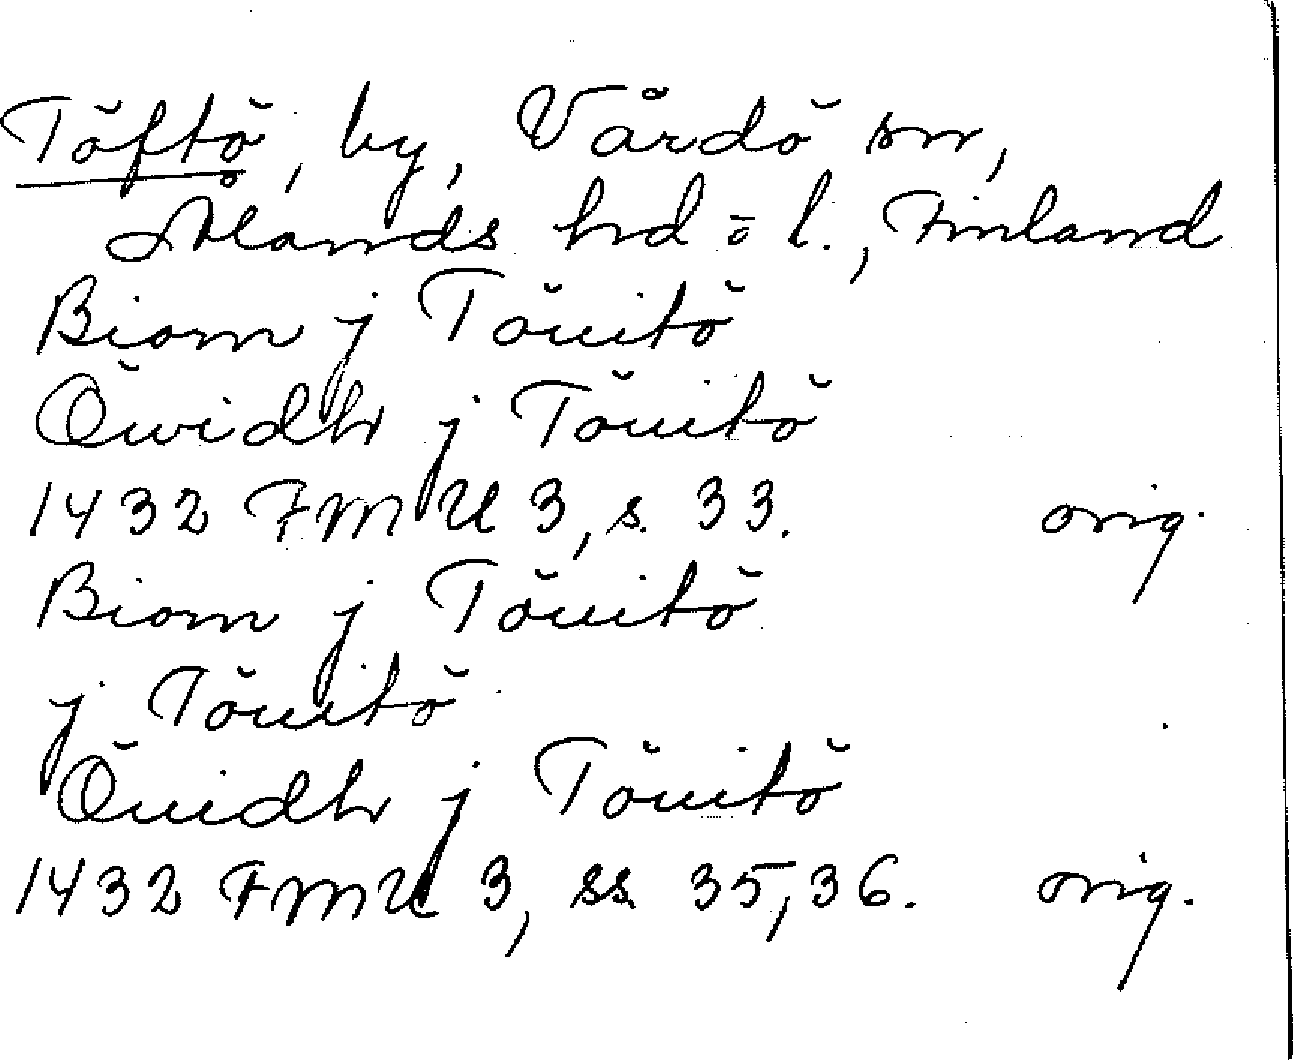 Töftö, by, Vårdö sn,
Ålands hd o l., Finland
Biorn j Töuitö
Öwidh j Töuitö
1432 FMU 3, s. 33. orig.
Biorn j Töuitö
j Töuitö
Öuidh j Töuitö
1432 FMU 3, ss. 35, 36. orig.